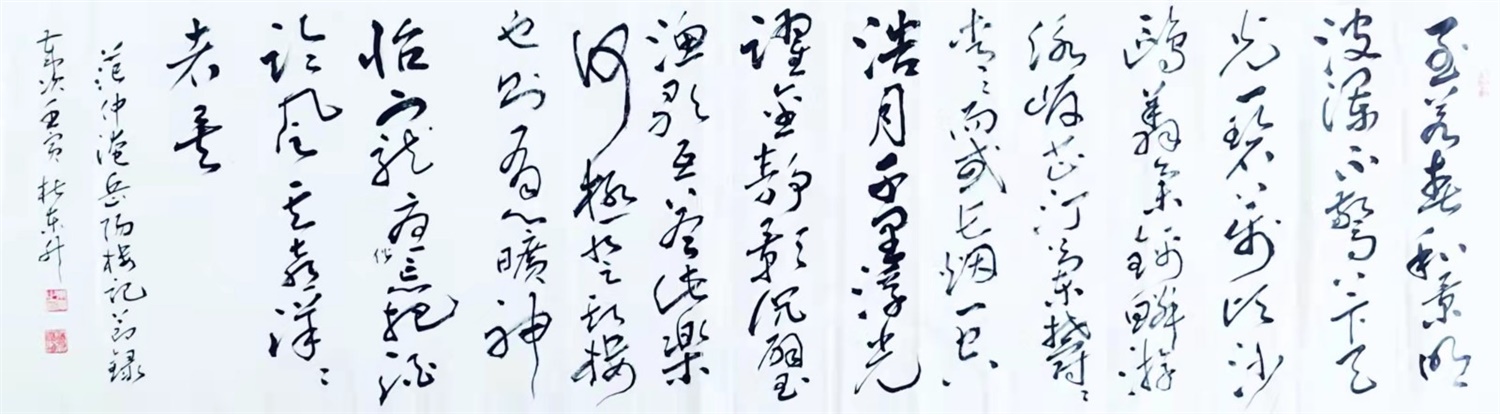 至若春和景明
波澜不惊上下天
光一碧万顷沙
鸥翔集锦鳞游
泳岸芷汀兰鬱々
青々而或长烟一空
浩月千里浮光
躍金静影沉璧
渔歌互答此樂
何極登斯楼
也则有心曠神
怡宠辱偕忘把酒
临风其喜洋々
者矣
范仲淹岳阳楼记节录
岁次壬寅杜东升